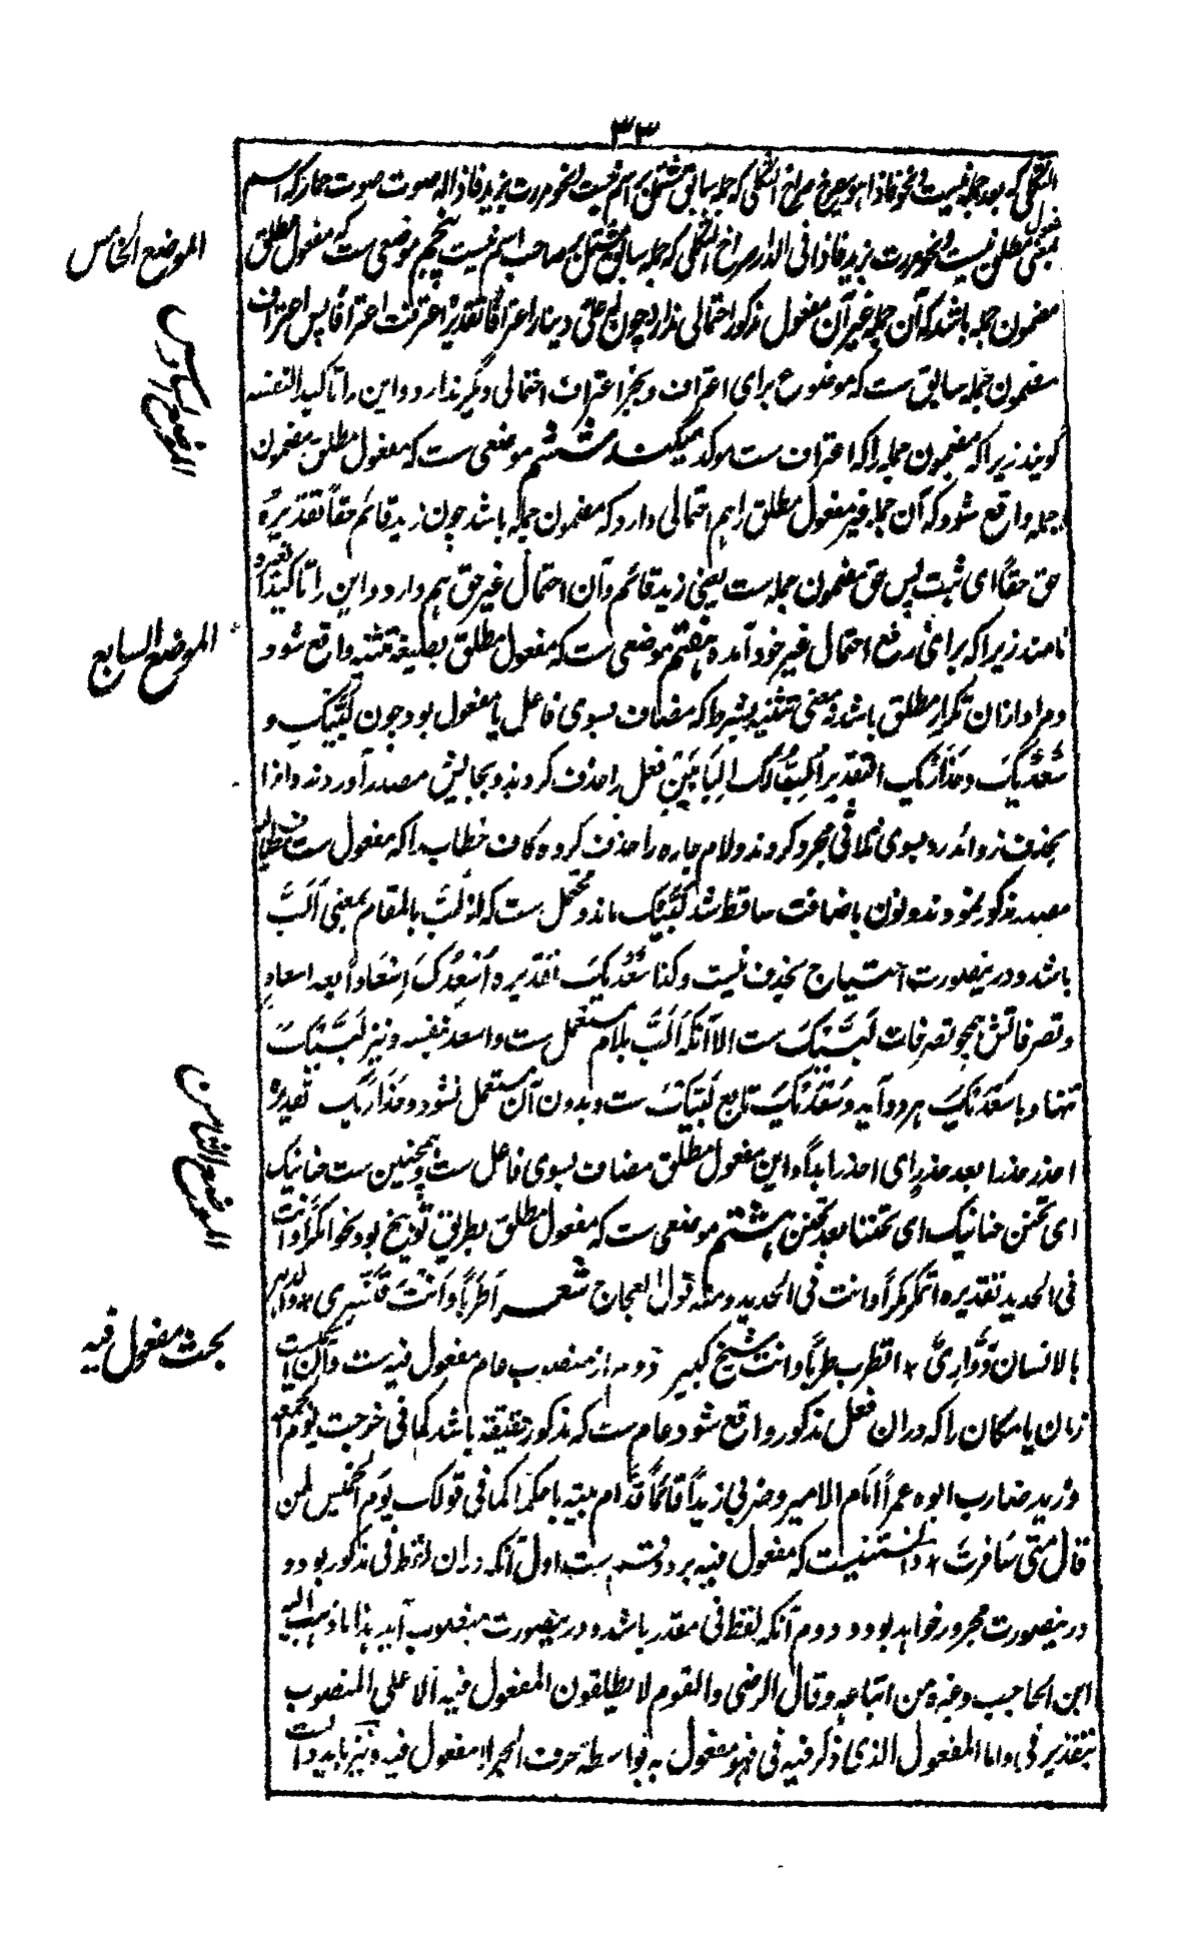 ۳۳
الثکلی که بعد جمله نیست و نحو فاذا هو یصرخ صراخ الثکلی که جمله سابق مشتمل بر اسم نیست و نحو مررت بزید فاذا له صوت صوت حمار که اسم
بمعنی مفعول مطلق نیست و نحو مررت بزید فاذا فی الدار صراخ الثکلی که جمله سابق مشتمل بر صاحب اسم نیست پنجم موضعی ست که مفعول مطلق
الموضع الخامس
مضمون جمله باشد که آن جمله غیر آن مفعول مذکور احتمالی ندارد چون له علی دینار اعترافاً تقدیره اعترفت اعترافاً پس اعتراف
مضمون جمله سابق ست که موضوع برای اعتراف و بجز اعتراف احتمالی دیگر ندارد و این را تاکید لنفسه
الموضع السادس
گویند زیرا که مضمون جمله را که اعتراف ست موکد میکند ششم موضعی ست که مفعول مطلق مضمون
جمله واقع شود که آن جمله غیر مفعول مطلق را هم احتمالی دارد که مضمون جمله باشد چون زید قائم حقاً تقدیره
حق حقاً ای ثبت پس حق مضمون جمله ست یعنی زید قائم و آن احتمال غیر حق هم دارد و این را تاکیداً لغیره
نامند زیرا که برای رفع احتمال غیر خود آمده هفتم موضعی ست که مفعول مطلق بصیغه تثنیه واقع شود
الموضع السابع
و مراد ازان تکرار مطلق باشد نه معنی تثنیه بشرطیکه مضاف بسوی فاعل یا مفعول بود چون لَبَّیْکَ و
سَعْدَیْکَ و حَذَارَیْکَ التقدیر اُلِبُّ لَکَ اِلْبَابَیْنِ فعل را حذف کردند و بجایش مصدر آوردند و او را
بحذف زوائد رد بسوی ثلاثی مجرد کردند و لام جاره را حذف کرده کاف خطاب را که مفعول ست
مصدر مذکور نمودند و نون باضافت ساقط شد لَبَّیْکَ ماند و محتمل ست که از لَبَّ بالمقام بمعنی اَلَبَّ
باشد و درینصورت احتیاج بحذف نیست و کذا سَعْدَیْکَ تقدیره اُسْعِدُکَ اِسْعَاداً بعد اسعادٍ
و تصرفاتش همچو تصرفات لَبَّیْکَ ست الا آنکه اَلَبَّ بلام مستعمل ست و اسعد بنفسه و نیز لَبَّیْکَ
تنها و با سَعْدَیْکَ هر دو آید و سَعْدَیْکَ تابع لَبَّیْکَ ست و بدون آن مستعمل نشود و حَذَارَیْکَ تقدیره
الموضع الثامن
احذر حذراً بعد حذرٍ ای احذر ابداً و این مفعول مطلق مضاف بسوی فاعل ست و همچنین ست حنانیک
ای تحنن حنانیک ای تحننا بعد تحنن هشتم موضعی ست که مفعول مطلق بطریق توبیخ بود نحو اَمَکْراً و اَنْتَ
فی الحدید تقدیره اتمکر مکراً و انت فی الحدید و منه قول العجاج شعر اَطَرَباً وَاَنْتَ قِنَّسْرِی * والدهر
بالانسان دَوَّارِیُّ * اتطرب طرباً و انت شیخ کبیر دوم از منصوب عام مفعول فیه ست و آن
بحث مفعول فیه
زمان یا مکان را که دران فعل مذکور واقع شود عام ست که مذکور حقیقة باشد کما فی خرجت یوم الجمعه
و زید ضارب ابوه عمراً امام الامیر و ضربی زیداً قائماً قدام بیته یا حکماً کما فی قولک یوم الخمیس لمن
قال متی سافرت * دانستنیست که مفعول فیه بر دو قسم ست اول آنکه دران لفظ فی مذکور بود و
درینصورت مجرور خواهد بود و دوم آنکه لفظ فی مقدر باشد و درینصورت منصوب آید هذا ما ذهب الیه
ابن الحاجب و غیره من اتباعه و قال الرضی والقوم لا یطلقون المفعول فیه الا علی المنصوب
بتقدیر فی و اما المفعول الذی ذکر فیه فی فهو مفعول به بواسطة حرف الجر لا مفعول فیه و نیز باید دانست